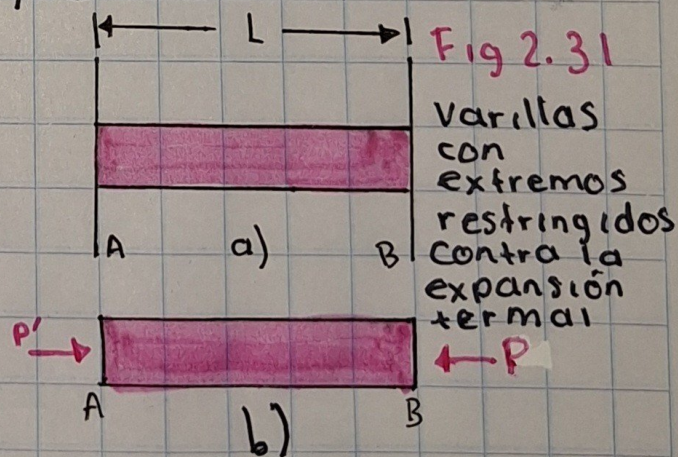 L
Fig 2.31
varillas
con
extremos
restringidos
contra la
expansión
termal
A a) B
P' P
A B
b)